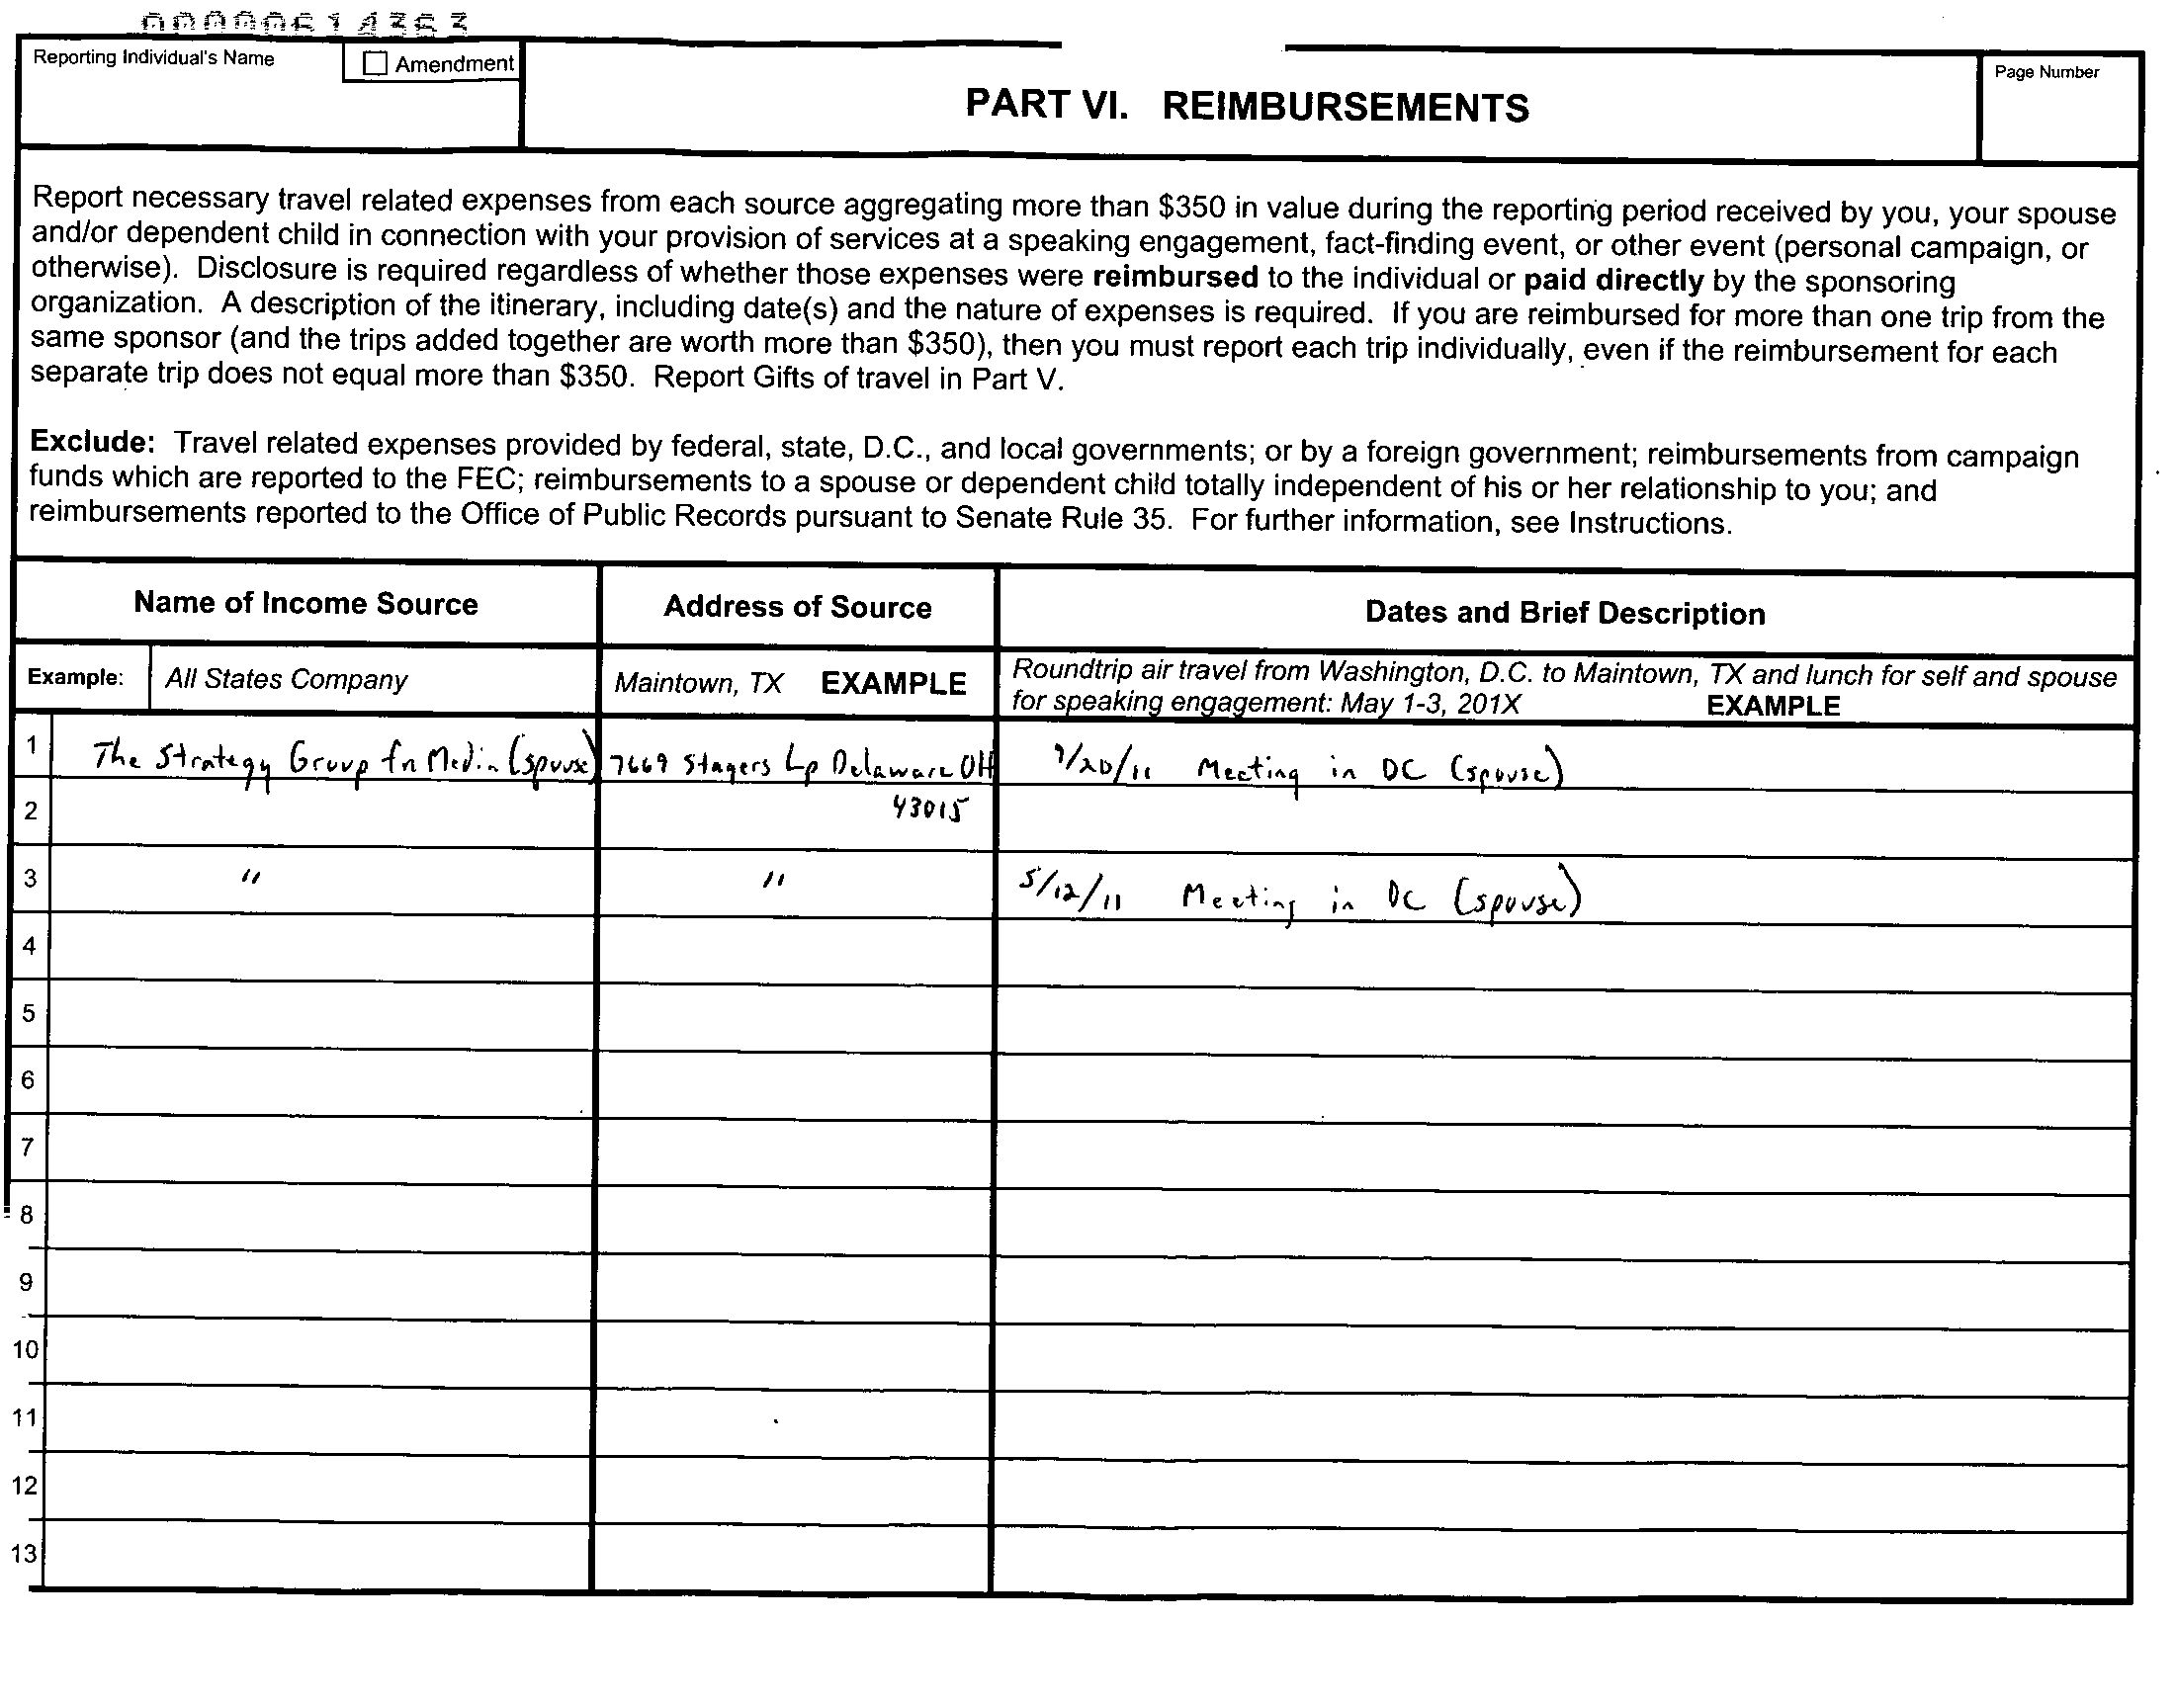 Reporting Individual's Name
Amendment
PART VI. REIMBURSEMENTS
Page Number
Report necessary travel related expenses from each source aggregating more than $350 in value during the reporting period received by you, your spouse
and/or dependent child in connection with your provision of services at a speaking engagement, fact-finding event, or other event (personal campaign, or
otherwise). Disclosure is required regardless of whether those expenses were reimbursed to the individual or paid directly by the sponsoring
organization. A description of the itinerary, including date(s) and the nature of expenses is required. If you are reimbursed for more than one trip from the
same sponsor (and the trips added together are worth more than $350), then you must report each trip individually, even if the reimbursement for each
separate trip does not equal more than $350. Report Gifts of travel in Part V.
Exclude: Travel related expenses provided by federal, state, D.C., and local governments; or by a foreign government; reimbursements from campaign
funds which are reported to the FEC; reimbursements to a spouse or dependent child totally independent of his or her relationship to you; and
reimbursements reported to the Office of Public Records pursuant to Senate Rule 35. For further information, see Instructions.
Name of Income Source Address of Source Dates and Brief Description
Example: All States Company Maintown, TX EXAMPLE Roundtrip air travel from Washington, D.C. to Maintown, TX and lunch for self and spouse
for speaking engagement: May 1-3, 201X EXAMPLE
1 The Strategy Group for Media (spouse) 7669 Stagers Lp Delaware OH Meeting in DC (spouse)
2 43015
3 " " 5/12/11 Meeting in DC (spouse)
4
5
6
7
8
9
10
11
12
13